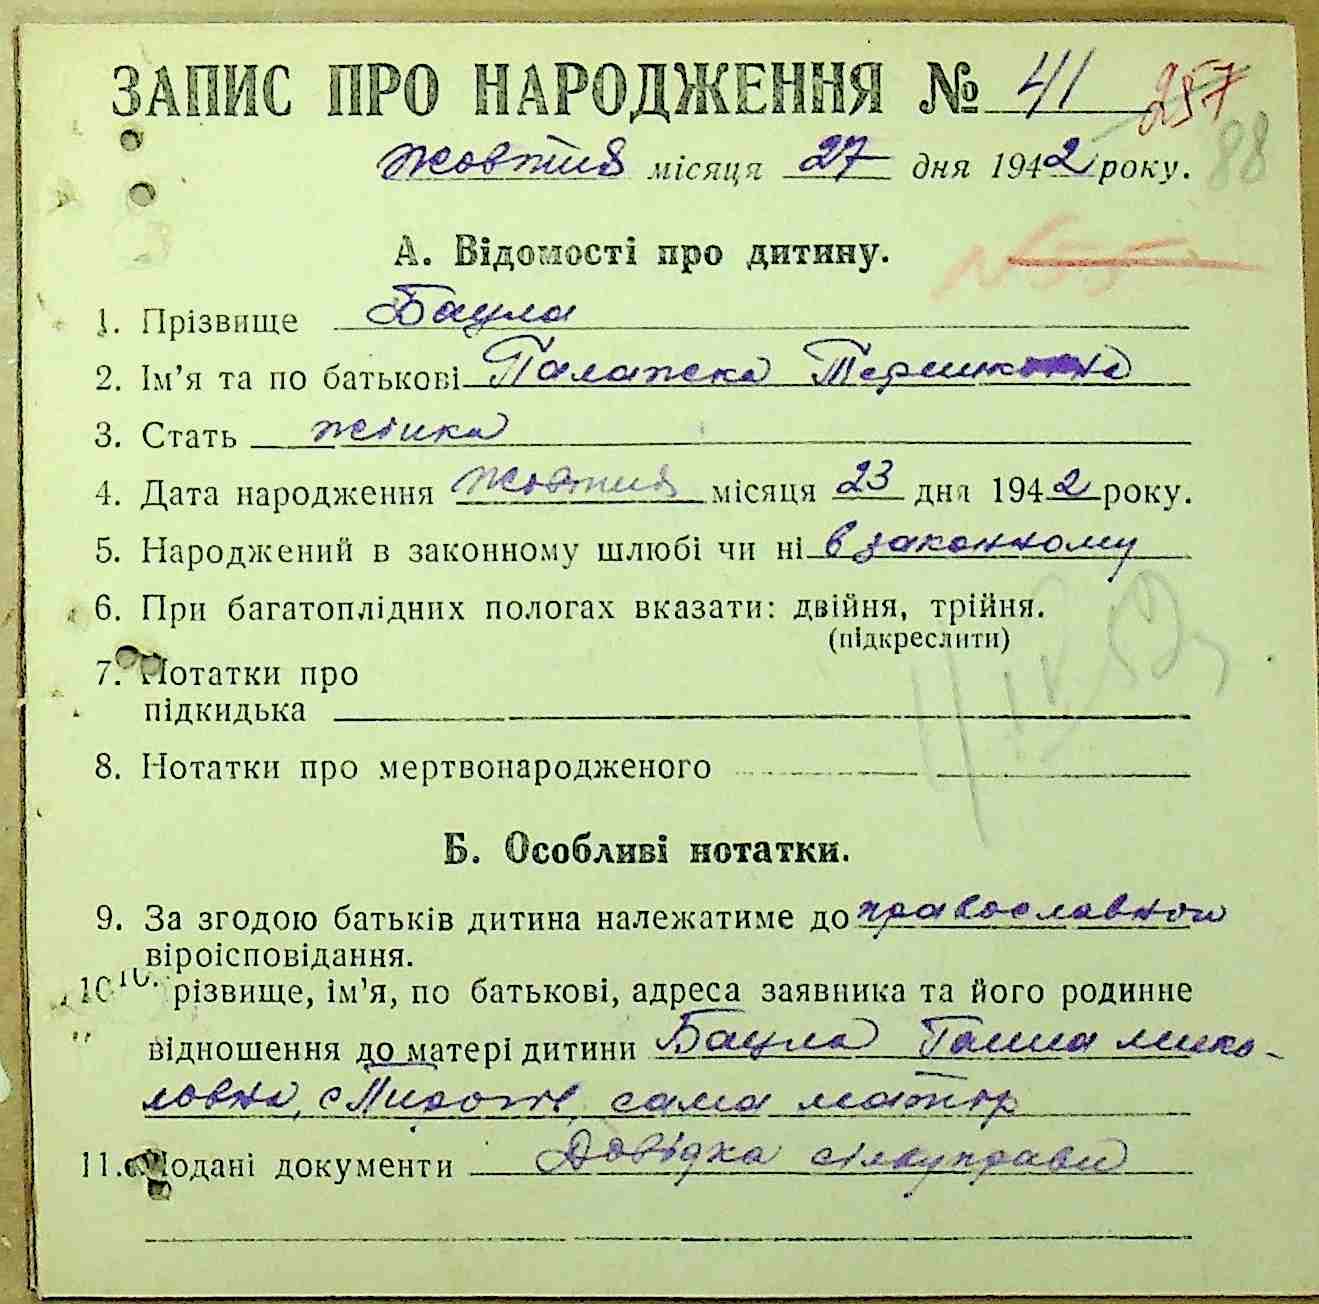 ЗАПИС ПРО НАРОДЖЕННЯ № 41 257
жовтня місяця 27 дня 1942 року. 88
А. Відомості про дитину.
№ 55
1. Прізвище Бацла
2. Ім'я та по батькові Палажка
3. Стать жінка
4. Дата народження жовтня місяця 23 дня 1942 року.
5. Народжений в законному шлюбі чи ні в законному
6. При багатоплідних пологах вказати: двійня, трійня.
(підкреслити)
7. Нотатки про
підкидька
8. Нотатки про мертвонародженого
Б. Особливі нотатки.
9. За згодою батьків дитина належатиме до православної
віроісповідання.
10 10. різвище, ім'я, по батькові, адреса заявника та його родинне
відношення до матері дитини Бацла Ганна мико-
ловна, с сама матір
11. Подані документи Довідка сількуправи